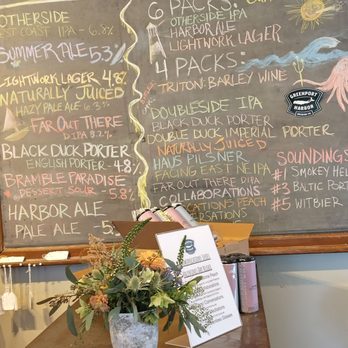 OTHERSIDE
WEST COAST IPA -
SUMMER ALE 5.3%
LIGHTWORK LAGER 4.8%
NATURALLY JUICED
HAZY PALE ALE 6.3%
FAR OUT THERE
DIPA 8.2%
BLACK DUCK PORTER
ENGLISH PORTER - 4.8%
BRAMBLE PARADISE
DESSERT SOUR - 5.8%
HARBOR ALE
PALE ALE - 5%
6 PACKS:
OTHERSIDE IPA
HARBOR ALE
LIGHTWORK LAGER
4 PACKS:
TRITON: BARLEY WINE
DOUBLESIDE IPA
BLACK DUCK PORTER
DOUBLE DUCK IMPERIAL PORTER
NATURALLY JUICED
HAUS PILSNER
FACING EAST NEIPA
FAR OUT THERE DIPA
COLLABORATIONS
PEACH
GREENPORT
HARBOR
SOUNDINGS
#1 SMOKEY HEL
#3 BALTIC PORT
#5 WITBIER